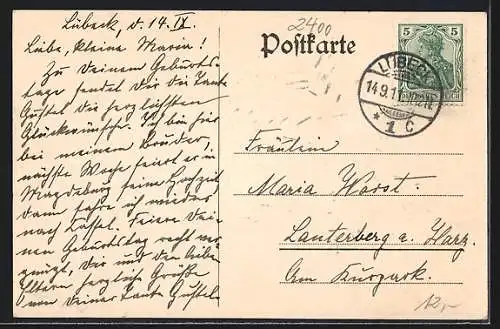 Lübeck, d. 14. IX.
Liebe, kleine Maria!
Zu Deinem Geburts-
tage sendet Dir die Tante
Gustel die herzlichsten
Glückwünsche. Ich bin hier
bei meinem Bruder,
nächste Woche feiert er in
Magdeburg seine Hochzeit
dann fahre ich wieder
nach Cassel. Feiere Dei-
nen Geburtstag recht ver-
gnügt, Dir und den lieben
Eltern herzliche Grüße
von Deiner Tante Gustel
2400
Postkarte
5 5
LÜBECK
14.9.1
* 1 C
Fräulein
Maria Worst.
Lauterberg a. Harz.
Am Kurpark.
12,-